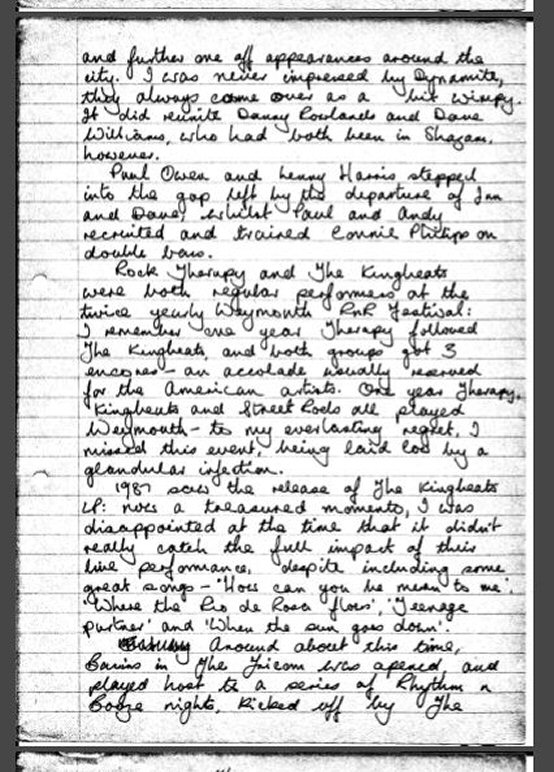 and further one off appearances around the
city. I was never impressed by Dynamite,
they always came over as a bit wimpy.
It did reunite Danny Rowlands and Dave
Williams, who had both been in Shazam,
however.
Paul Owen and Lenny Harris stepped
into the gap left by the departure of Ian
and Dave, whilst Paul and Andy
recruited and trained Connie Philipp on
double bass.
Rock Therapy and The Kingbeats
were both regular performers at the
twice yearly Weymouth RnR Festival:
I remember one year Therapy followed
The Kingbeats, and both groups got 3
encores - an accolade usually reserved
for the American artists. One year Therapy,
Kingbeats and Street Rods all played
Weymouth - to my everlasting regret, I
missed this event, being laid low by a
glandular infection.
1987 saw the release of The Kingbeats
LP: now a treasured momento, I was
disappointed at the time that it didn't
really catch the full impact of their
live performance, despite including some
great songs - 'How can you be mean to me'.
'Where the Rio de Rosa flows', 'Teenage
partner' and 'When the sun goes down'.
Around about this time,
in The Tricorn was opened, and
played host to a series of Rhythm n
Booze nights, kicked off by The